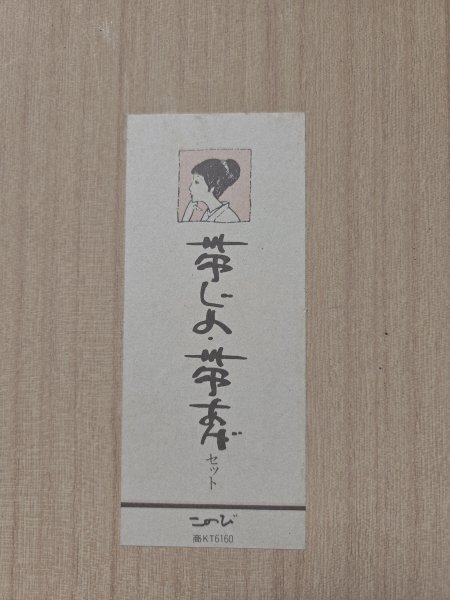 帯じめ・帯あげ
セット
このび
高KT6160